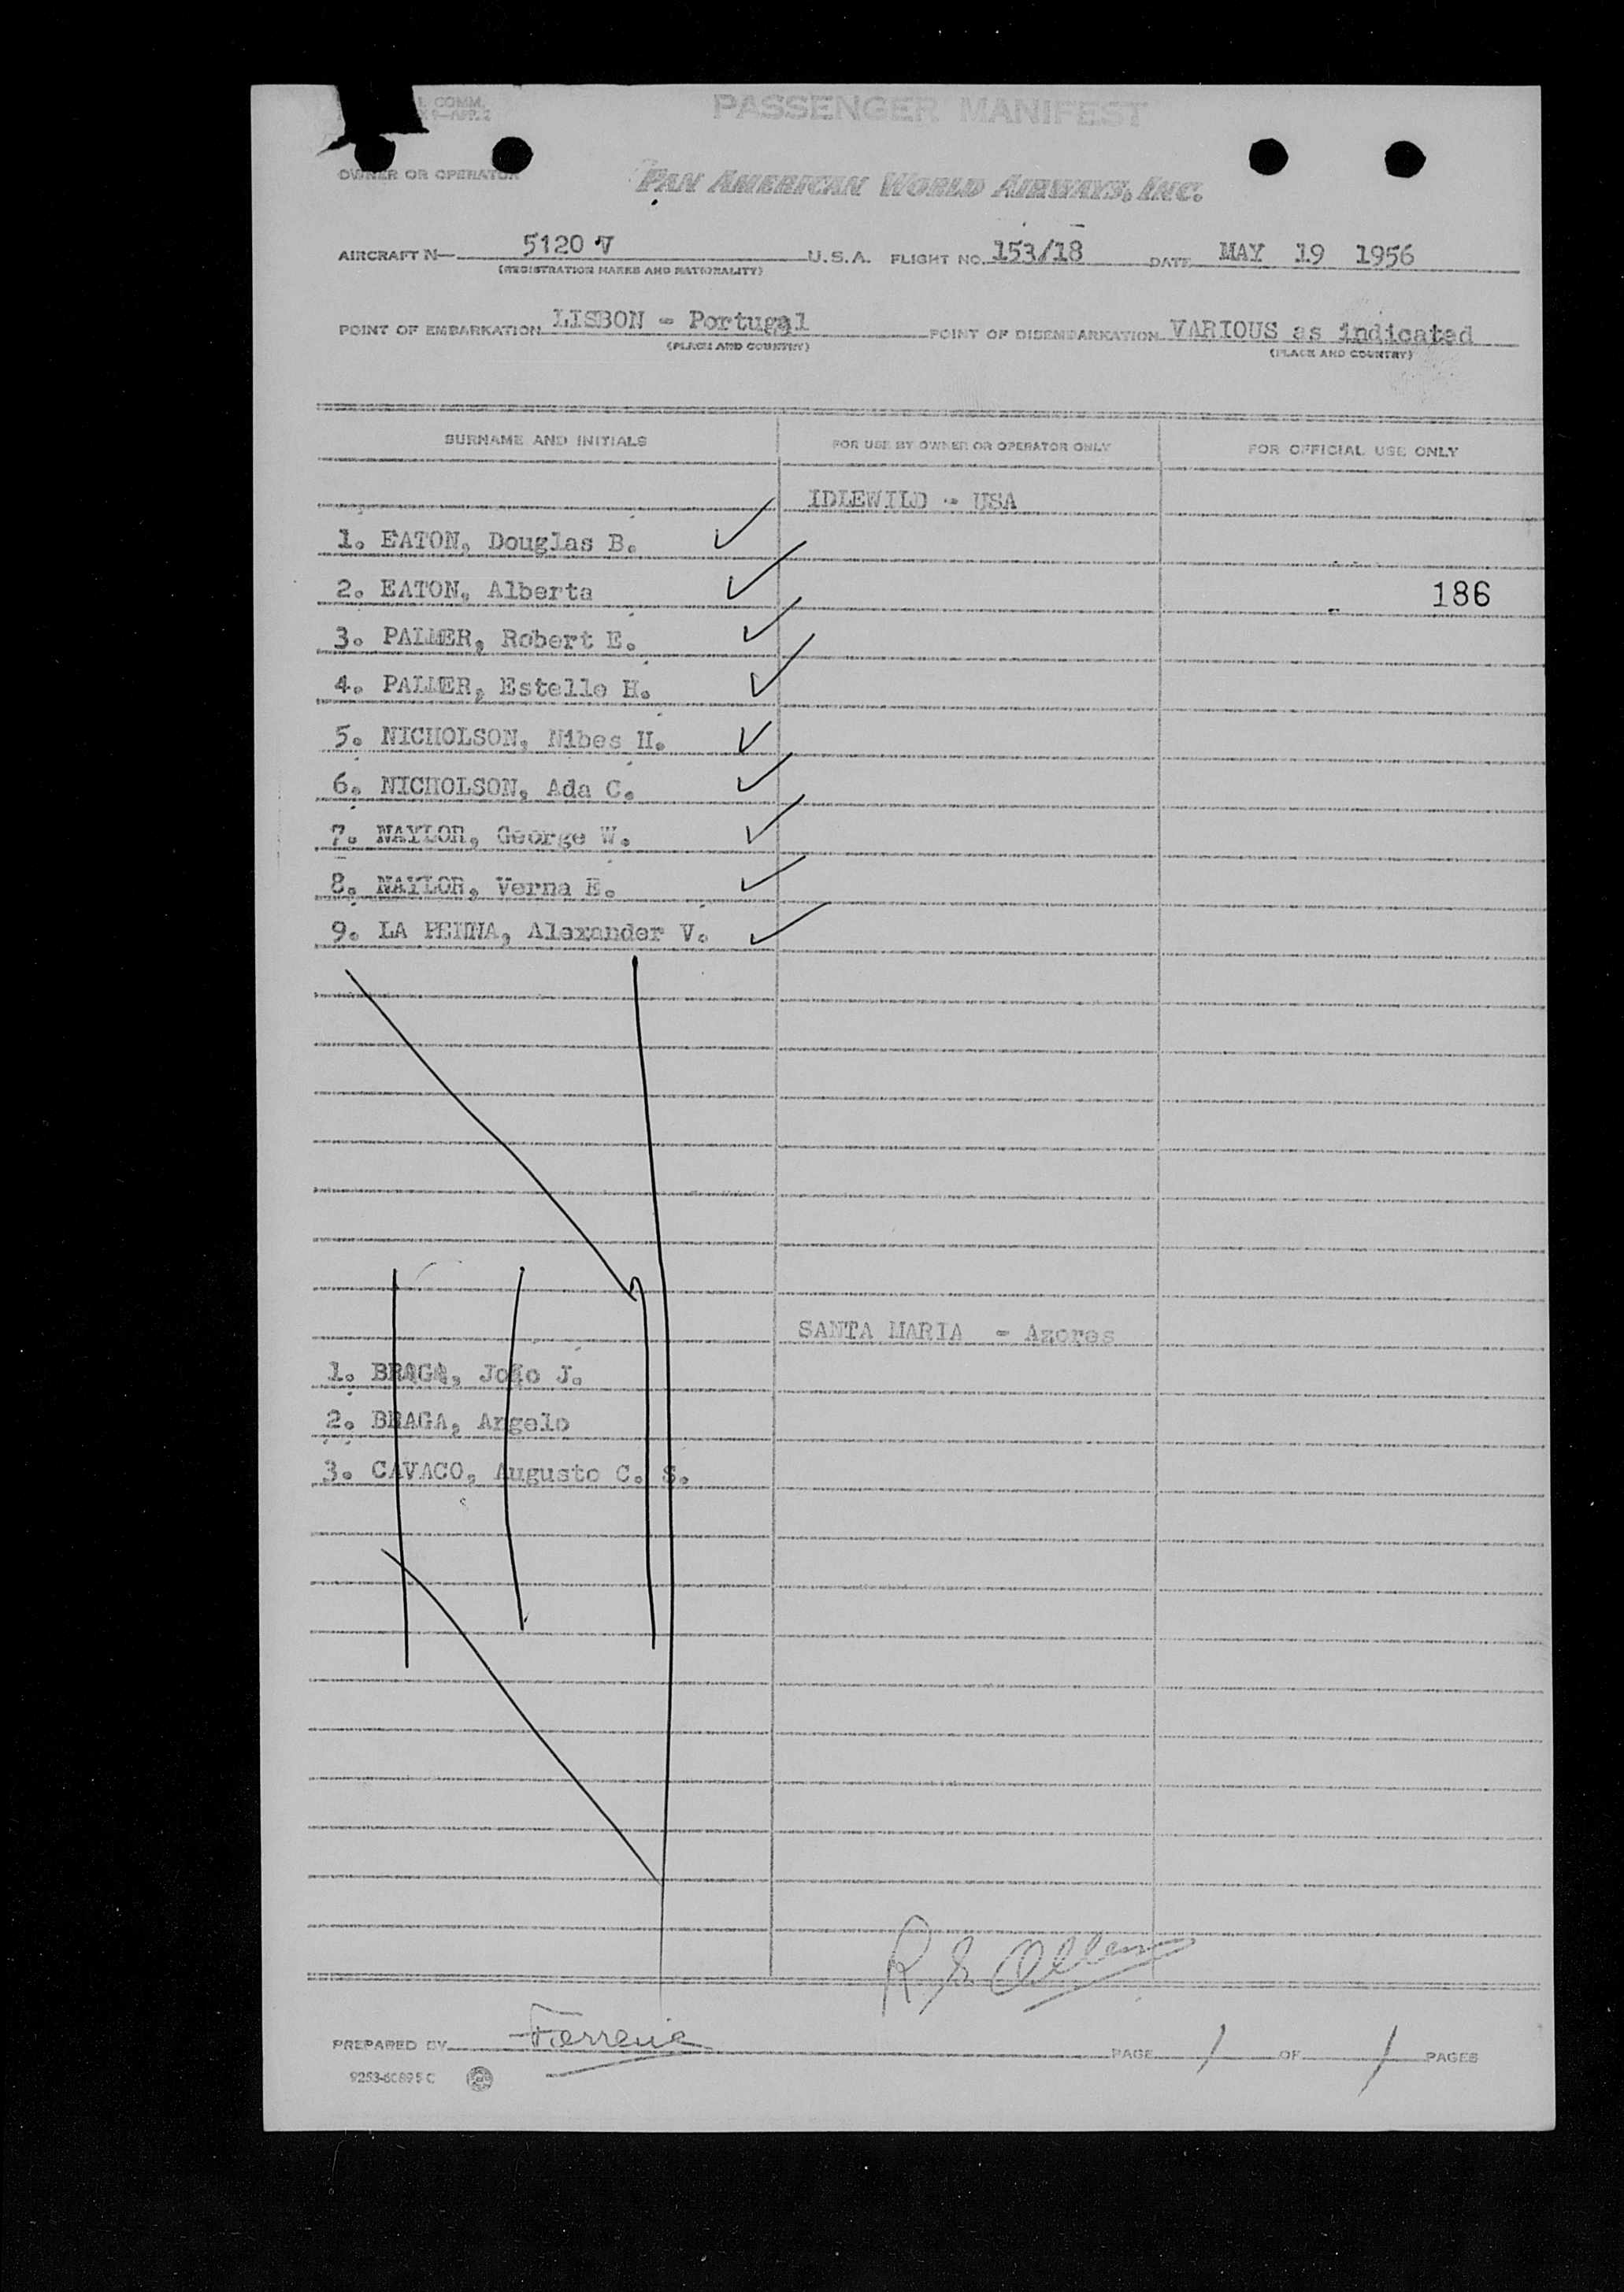 COMM.
PASSENGER MANIFEST
OWNER OR OPERATOR PAN AMERICAN WORLD AIRWAYS, INC.
AIRCRAFT N— 5120 V U.S.A. FLIGHT NO. 153/18 DATE MAY 19 1956
(REGISTRATION MARKS AND NATIONALITY)
POINT OF EMBARKATION LISBON - Portugal POINT OF DISEMBARKATION VARIOUS as indicated
(PLACE AND COUNTRY) (PLACE AND COUNTRY)
SURNAME AND INITIALS FOR USE BY OWNER OR OPERATOR ONLY FOR OFFICIAL USE ONLY
IDLEWILD - USA
1. EATON, Douglas B.
2. EATON, Alberta 186
3. PALMER, Robert E.
4. PALMER, Estelle H.
5. NICHOLSON, Nibes H.
6. NICHOLSON, Ada C.
7. NAYLOR, George W.
8. NAYLOR, Verna E.
9. LA PENNA, Alexander V.
SANTA MARIA - Azores
1. BRAGA, João J.
2. BRAGA, Angelo
3. CAVACO, Augusto C. S.
R E Allen
PREPARED BY Ferreira PAGE 1 OF 1 PAGES